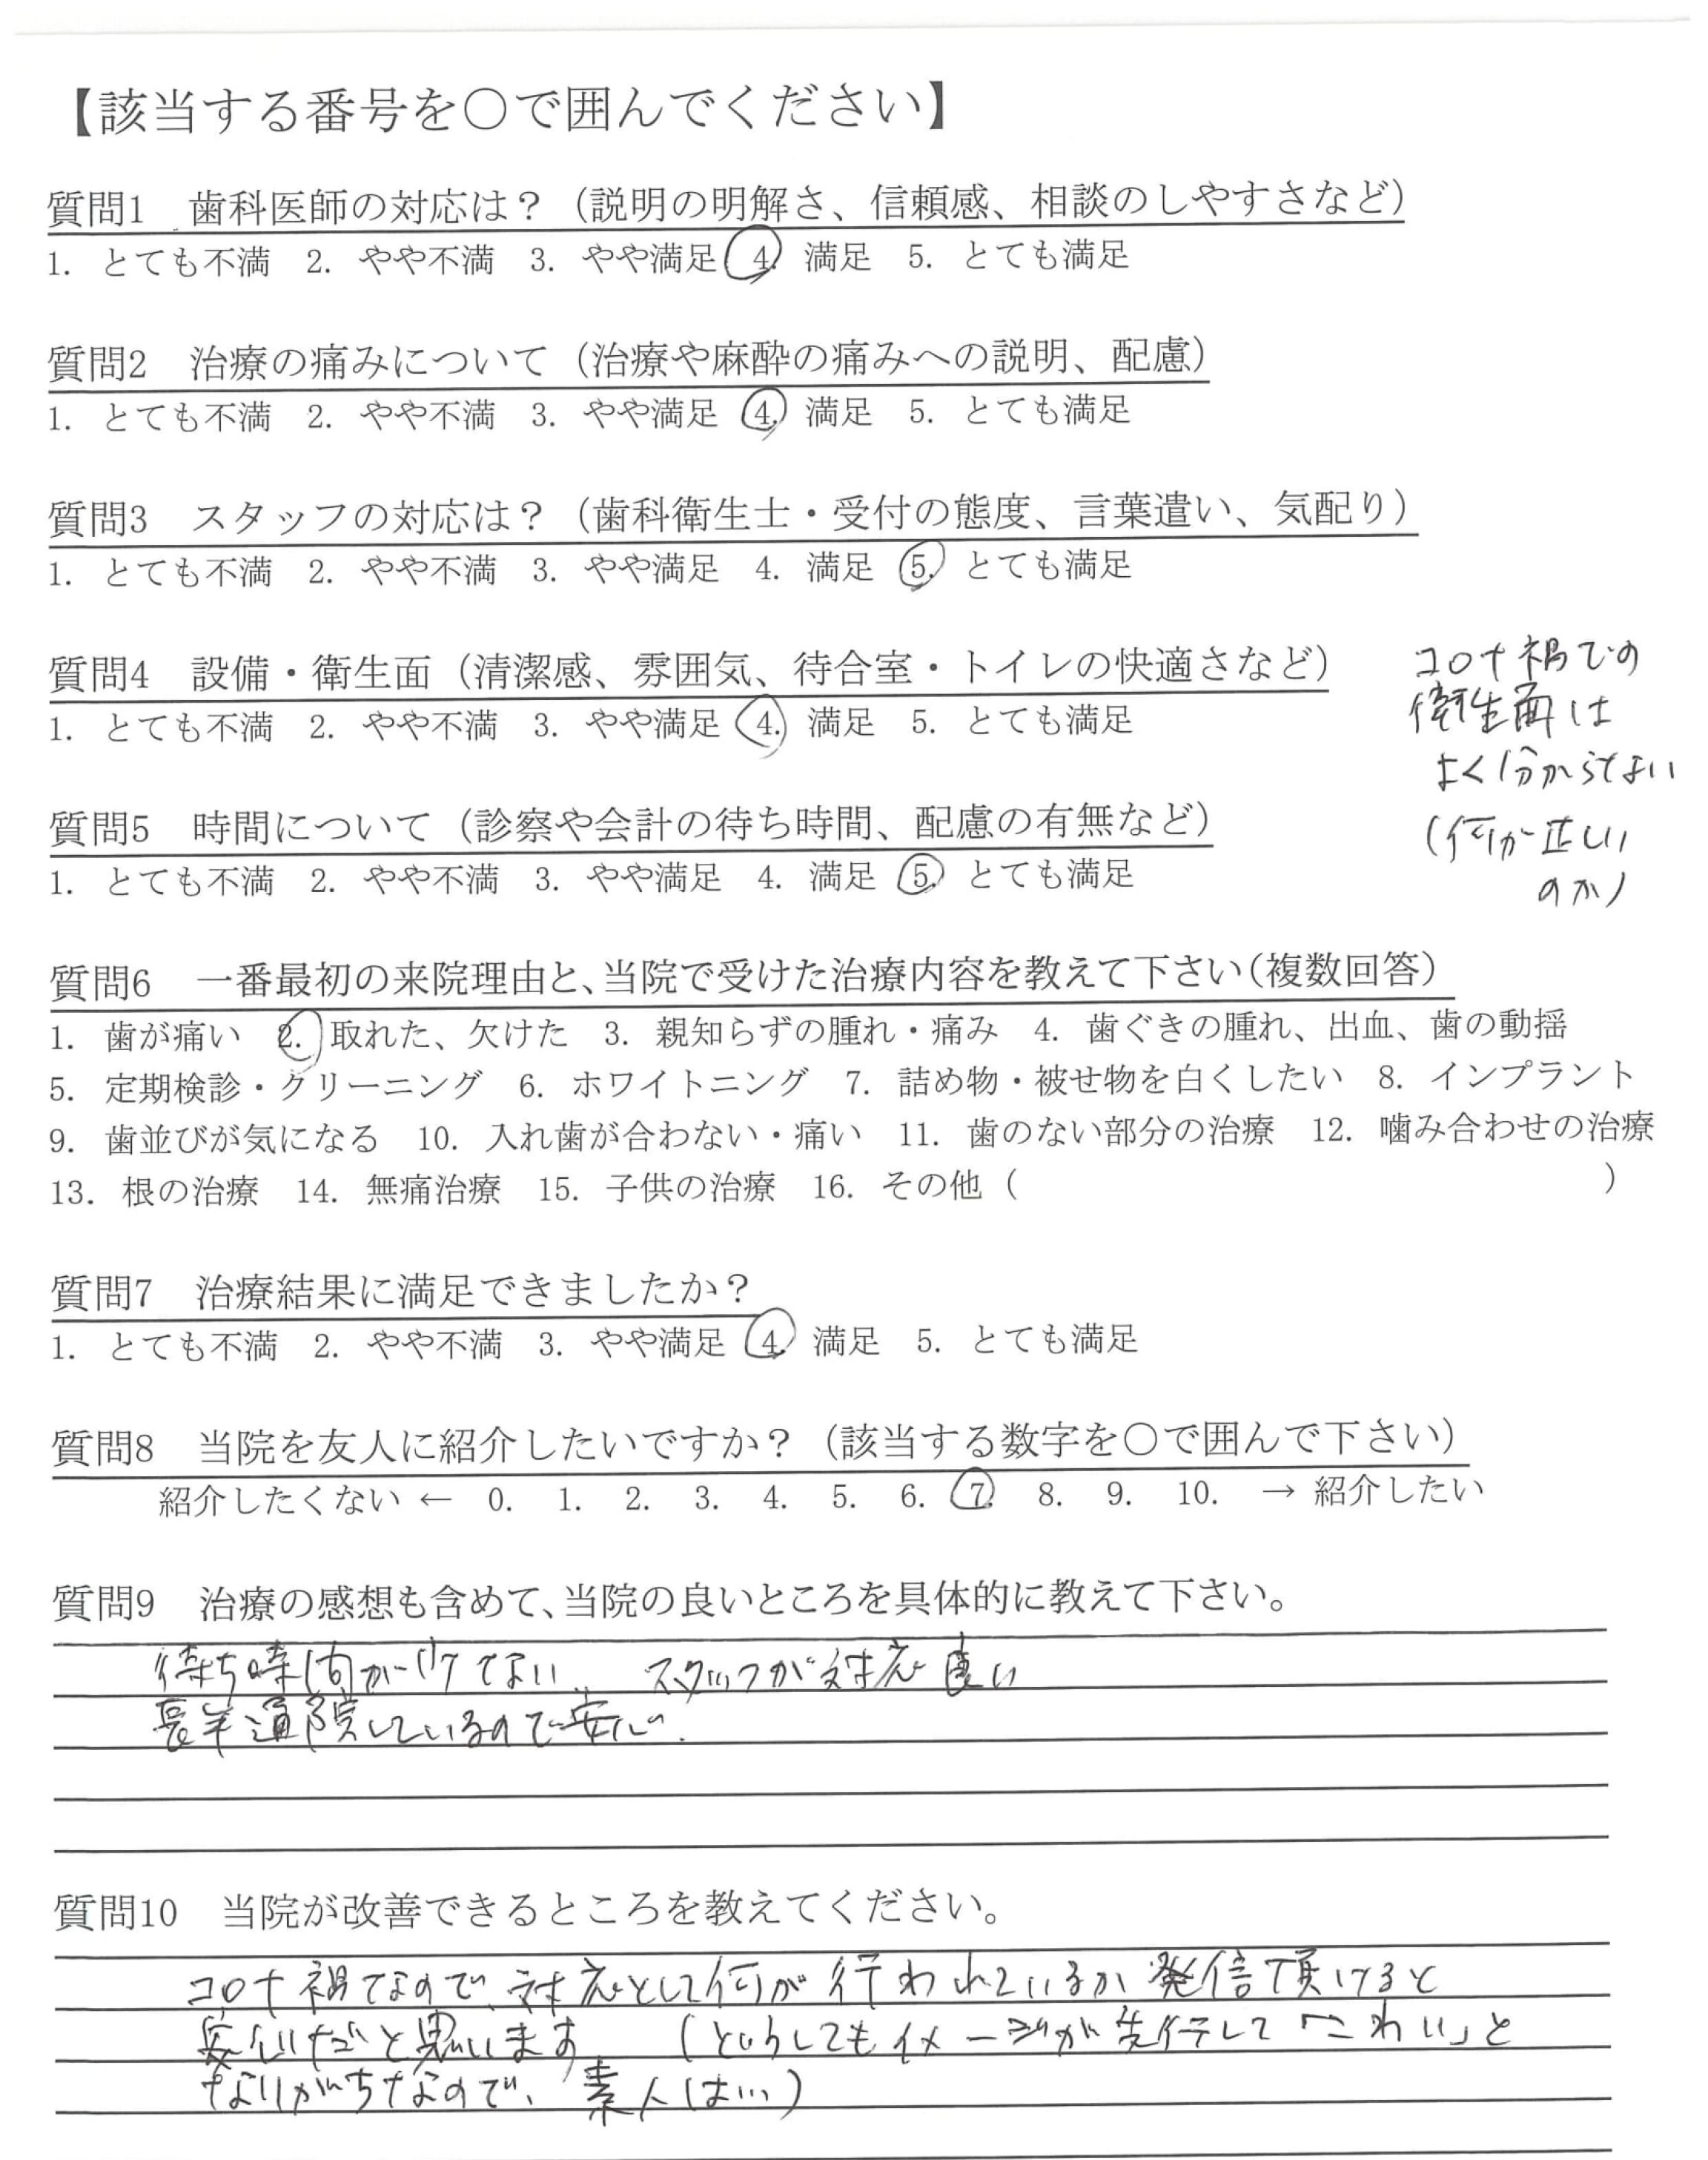 【該当する番号を○で囲んでください】
質問1　歯科医師の対応は？（説明の明解さ、信頼感、相談のしやすさなど）
1. とても不満　2. やや不満　3. やや満足　4. 満足　5. とても満足
質問2　治療の痛みについて（治療や麻酔の痛みへの説明、配慮）
1. とても不満　2. やや不満　3. やや満足　4. 満足　5. とても満足
質問3　スタッフの対応は？（歯科衛生士・受付の態度、言葉遣い、気配り）
1. とても不満　2. やや不満　3. やや満足　4. 満足　5. とても満足
質問4　設備・衛生面（清潔感、雰囲気、待合室・トイレの快適さなど）
1. とても不満　2. やや不満　3. やや満足　4. 満足　5. とても満足
コロナ禍での
衛生面は
よく分からない
（何が正しい
のか）
質問5　時間について（診察や会計の待ち時間、配慮の有無など）
1. とても不満　2. やや不満　3. やや満足　4. 満足　5. とても満足
質問6　一番最初の来院理由と、当院で受けた治療内容を教えて下さい（複数回答）
1. 歯が痛い　2. 取れた、欠けた　3. 親知らずの腫れ・痛み　4. 歯ぐきの腫れ、出血、歯の動揺
5. 定期検診・クリーニング　6. ホワイトニング　7. 詰め物・被せ物を白くしたい　8. インプラント
9. 歯並びが気になる　10. 入れ歯が合わない・痛い　11. 歯のない部分の治療　12. 噛み合わせの治療
13. 根の治療　14. 無痛治療　15. 子供の治療　16. その他（　　　　　　　　　　）
質問7　治療結果に満足できましたか？
1. とても不満　2. やや不満　3. やや満足　4. 満足　5. とても満足
質問8　当院を友人に紹介したいですか？（該当する数字を○で囲んで下さい）
紹介したくない ← 0. 1. 2. 3. 4. 5. 6. 7. 8. 9. 10. → 紹介したい
質問9　治療の感想も含めて、当院の良いところを具体的に教えて下さい。
待ち時間が少ない　スタッフが対応良い
長年通院しているので安心.
質問10　当院が改善できるところを教えてください。
コロナ禍なので、対応として何が行われているか発信頂けると
安心だと思います　（どうしてもイメージが先行して「こわい」と
なりがちなので、素人は…）